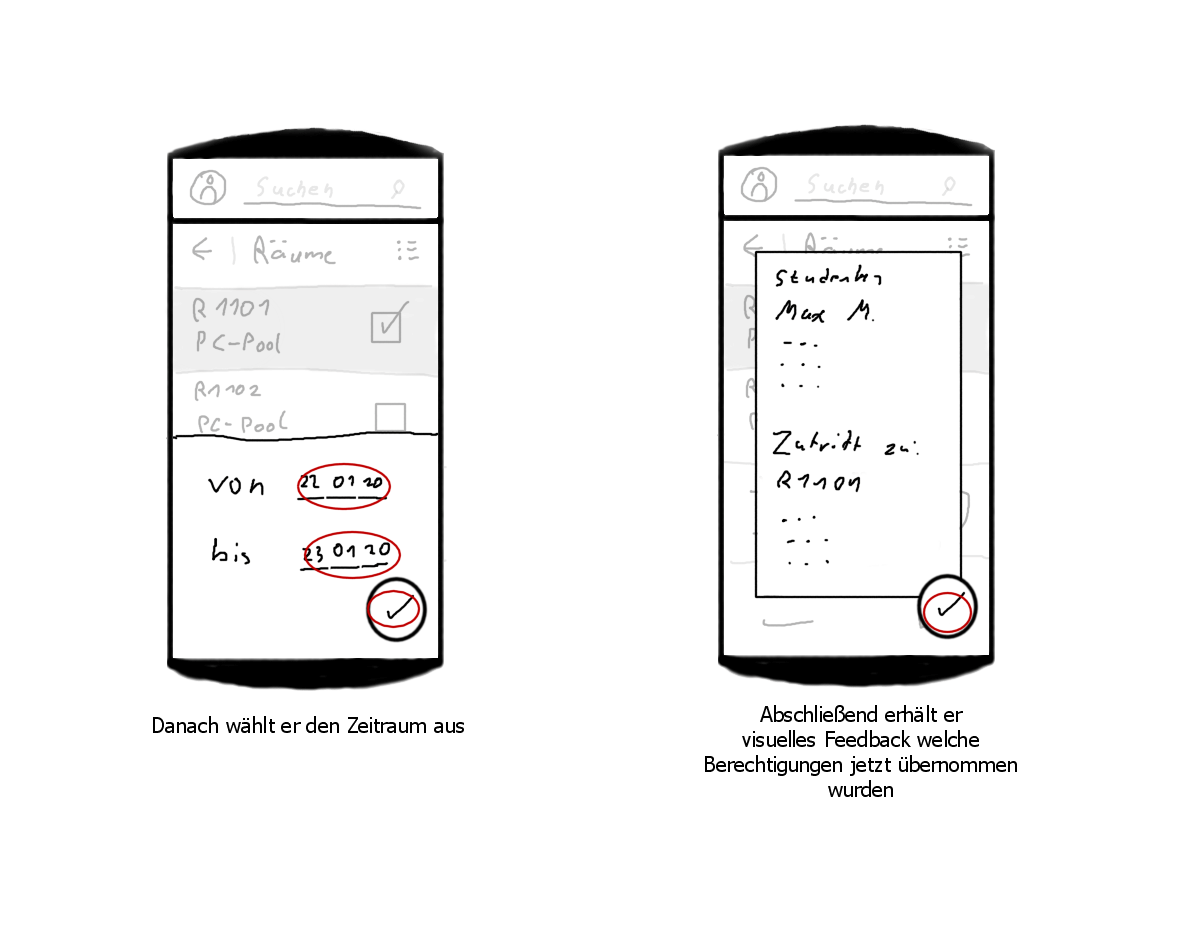 Suchen
Räume
R 1101
PC-Pool
R1102
PC-Pool
von 22 01 20
bis 23 01 20
Danach wählt er den Zeitraum aus
Suchen
Räume
Studenten
Max M.
...
...
...
Zutritt zu:
R1101
...
...
...
Abschließend erhält er
visuelles Feedback welche
Berechtigungen jetzt übernommen
wurden